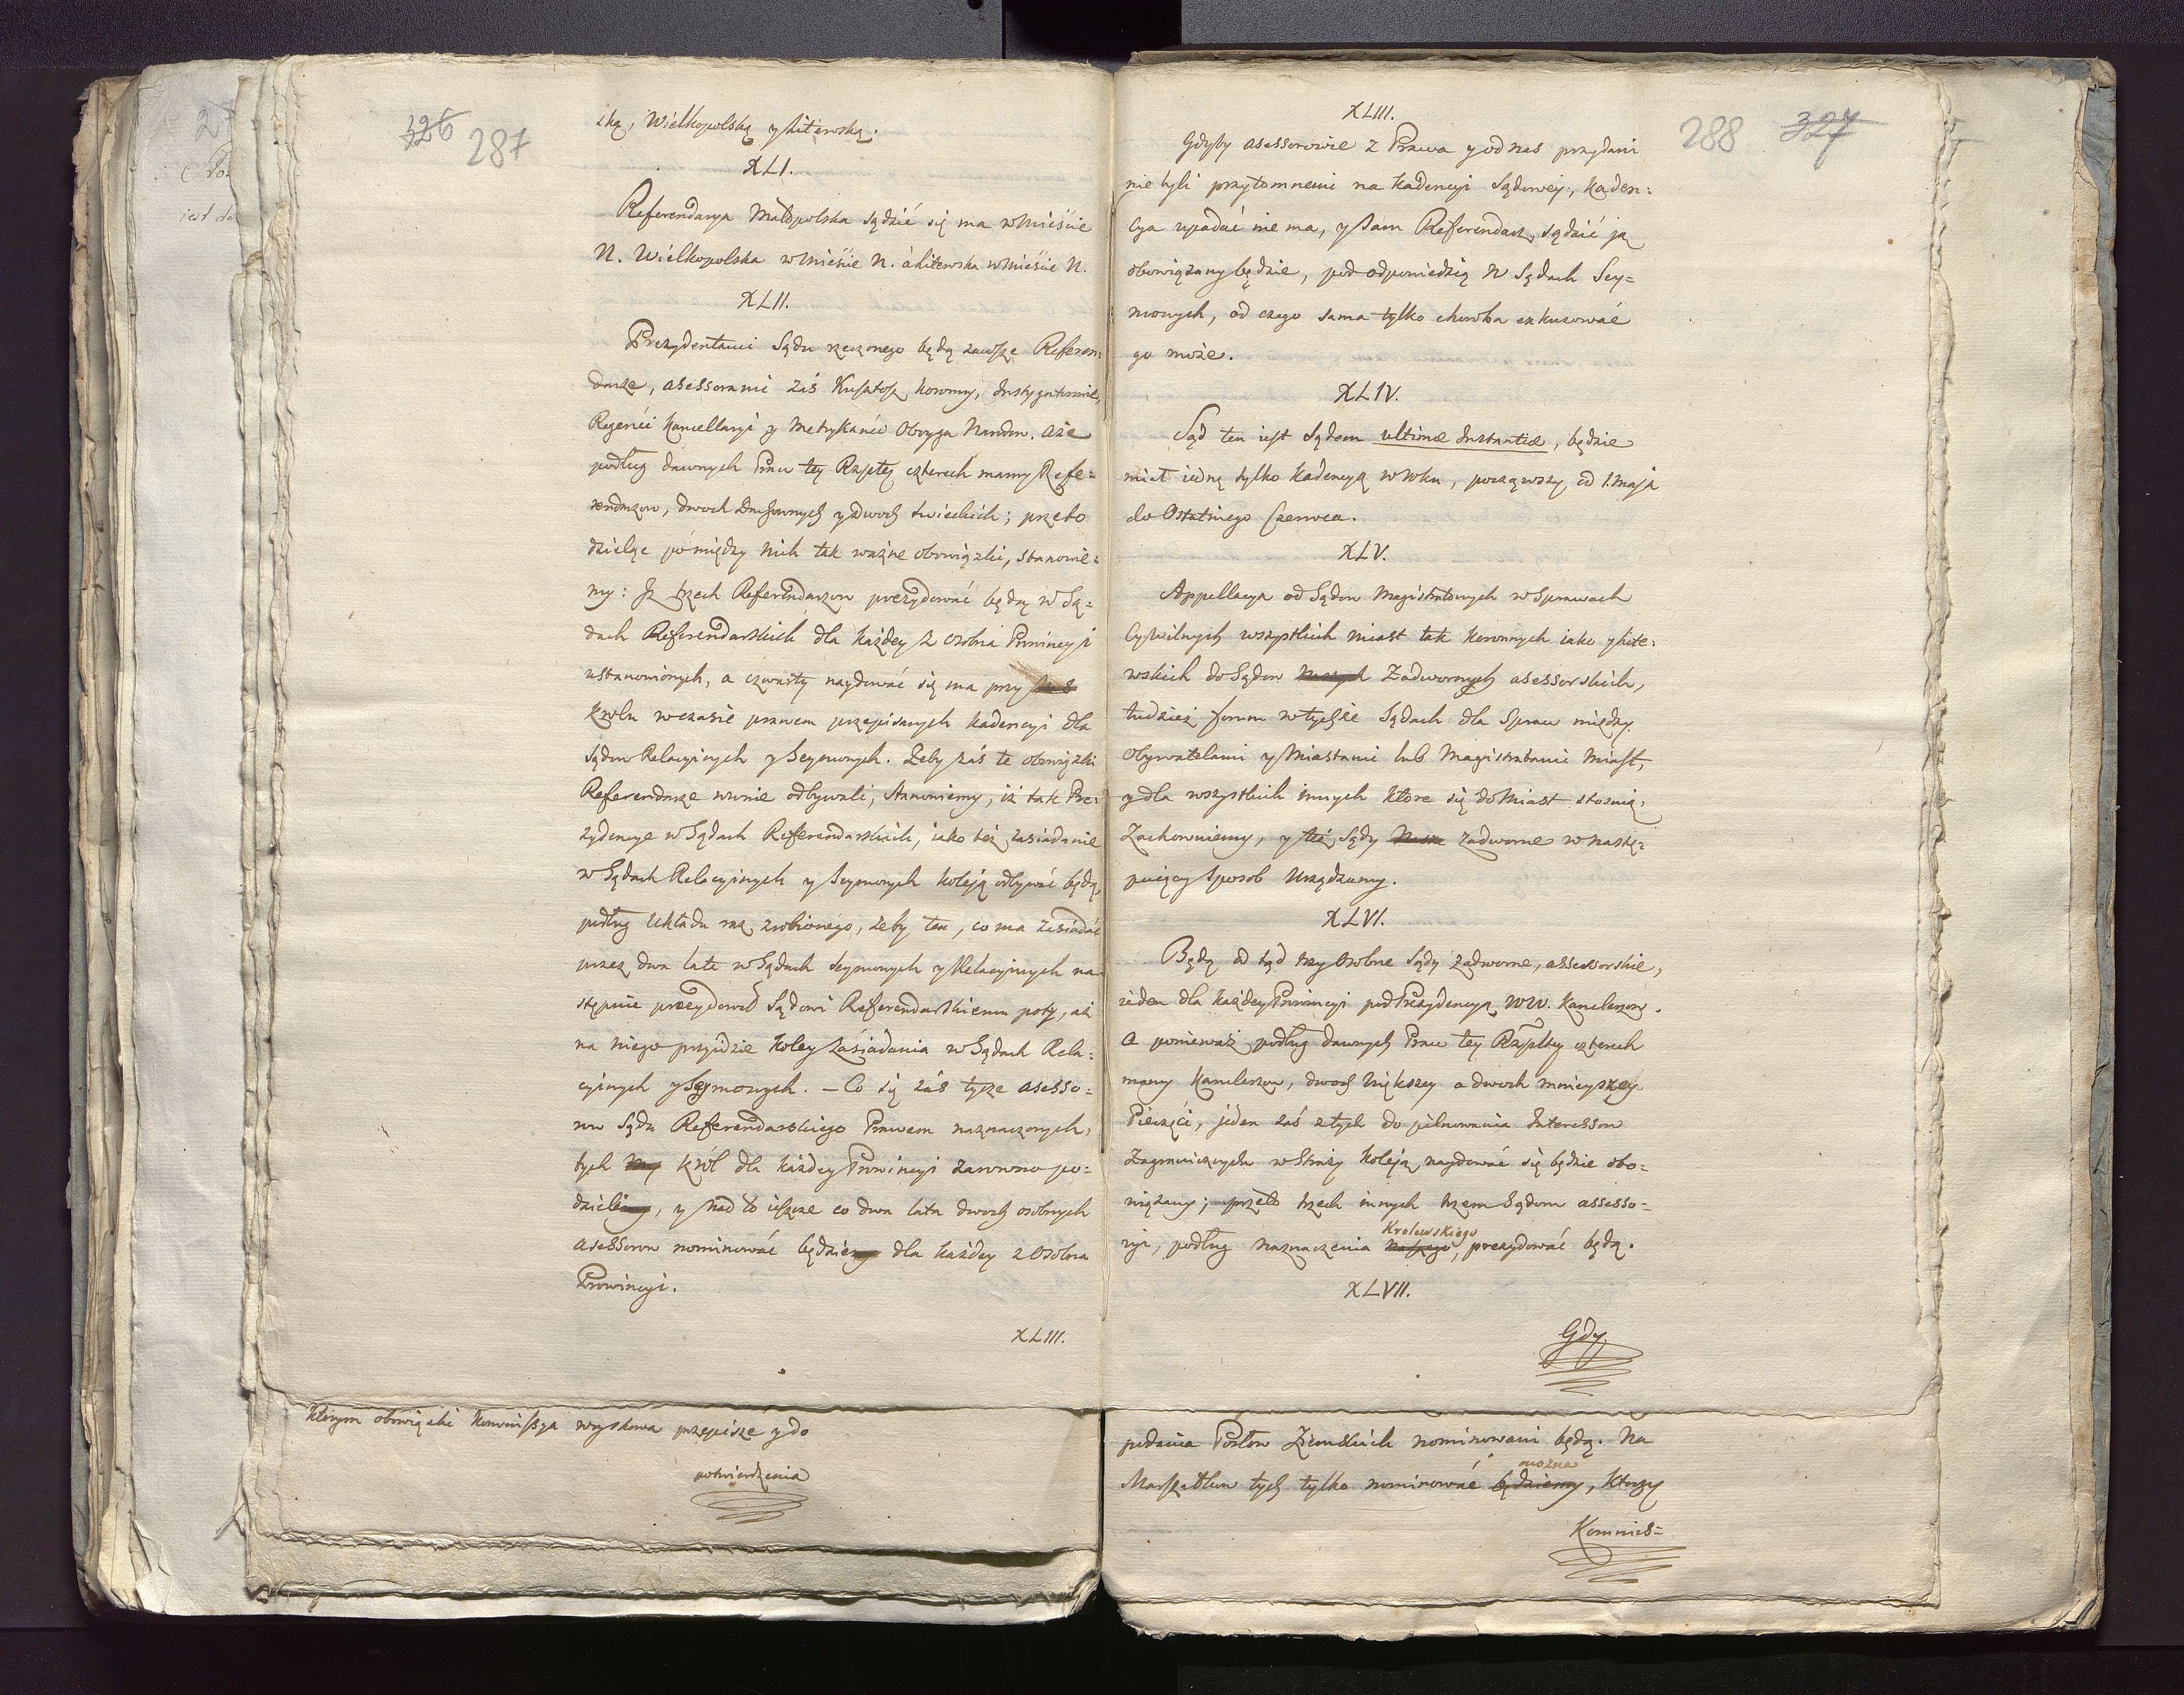 326 287
ską, Wielkopolską y Litewską.
XLI.
Referendarya Małopolska sądzić się ma w Mieście
N. Wielkopolska w Mieście N. á Litewska w Mieście N.
XLII.
Prezydentami Sądu rzeczonego będą zawsze Referen:
darze, assessorami zaś Kustosz koronny, Instygatorowie,
Regenci Kancellaryi y Metrykanci Oboyga Narodow. A że
podług dawnych Praw tey Rzpltey czterech mamy Refe:
rendarzow, dwoch Duchownych y dwoch świeckich; przeto
dzieląc pomiędzy nich tak ważne obowiązki, stanowie:
my: Iż trzech Referendarzow prezydować będą w Są:
dach Referendarskich dla każdey z osobna Prowincyi
ustanowionych, a czwarty naydować się ma przy
Krolu w czasie prawem przepisanych kadencyi dla
Sądow Relacyinych y Seymowych. Zeby zaś te obowiązki
Referendarze rownie odbywali, stanowiemy, iż tak Pre:
zydencye w Sądach Referendarskich, iako też zasiadanie
w Sądach Relacyinych y Seymowych koleją odbywać będą,
podług układu raz zrobionego, żeby ten, co ma zasiadać
przez dwa lata w Sądach Seymowych y Relacyinych na
stępnie prezydował Sądowi Referendarskiemu poty, aż
na niego przyidzie koley zasiadania w Sądach Rela:
cyinych y Seymowych. – Co się zaś tycze assesso:
row Sądu Referendarskiego Prawem naznaczonych,
tych my Krol dla każdey Prowincyi zarowno po:
dzieliemy, y nad to ieszcze co dwa lata dwoch osobnych
assessorow nominować będziemy dla każdey z osobna
Prowincyi.
XLIII.
którym obowiązki Kommissya woyskowa przepisze y do
potwierdzenia
288 327
XLIII.
Gdyby assessorowie z Prawa y od nas przydani
nie byli przytomnemi na kadencyi Sądowey, kaden:
cya upadać nie ma, y sam Referendarz sądzić ją
obowiązany będzie, pod odpowiedzią w Sądach Sey=
mowych, od czego sama tylko choroba exkuzować
go może.
XLIV.
Sąd ten iest Sądem ultimæ Instantiæ, będzie
miał iedną tylko kadencyą w roku, począwszy od 1. Maja
do Ostatniego Czerwca.
XLV.
Appellacya od Sądow Magistratowych w Sprawach
Cywilnych wszystkich miast tak Koronnych iako y Lite:
wskich do Sądow naszych Zadwornych assessorskich,
tudzież forum w tychże Sądach dla Spraw między
Obywatelami y Miastami lub Magistratami Miast,
y dla wszystkich innych ktore się do Miast stosuią,
Zachowuiemy, y też Sądy Nasze zadworne w nastę:
puiący sposob Urządzamy.
XLVI.
Będą od tąd trzy osobne Sądy zadworne, assessorskie,
ieden dla każdey Prowincyi pod Prezydencyą WW. Kanclerzow.
A ponieważ podług dawnych Praw tey Rzpltey czterech
mamy Kanclerzow, dwoch większey a dwoch mnieyszey
Pieczęci, jeden zaś z tych do pilnowania Interessow
Zagranicznych w Straży koleją naydować się będzie obo=
wiązany; przeto trzech innych trzem Sądom assesso=
ryi, podług naznaczenia naszego, prezydować będą.
Krolewskiego
XLVII.
Gdy
podania Posłow Ziemskich nominowani będą. Na
Marszałkow tych tylko nominować będziemy, ktorzy
można
Kommis=